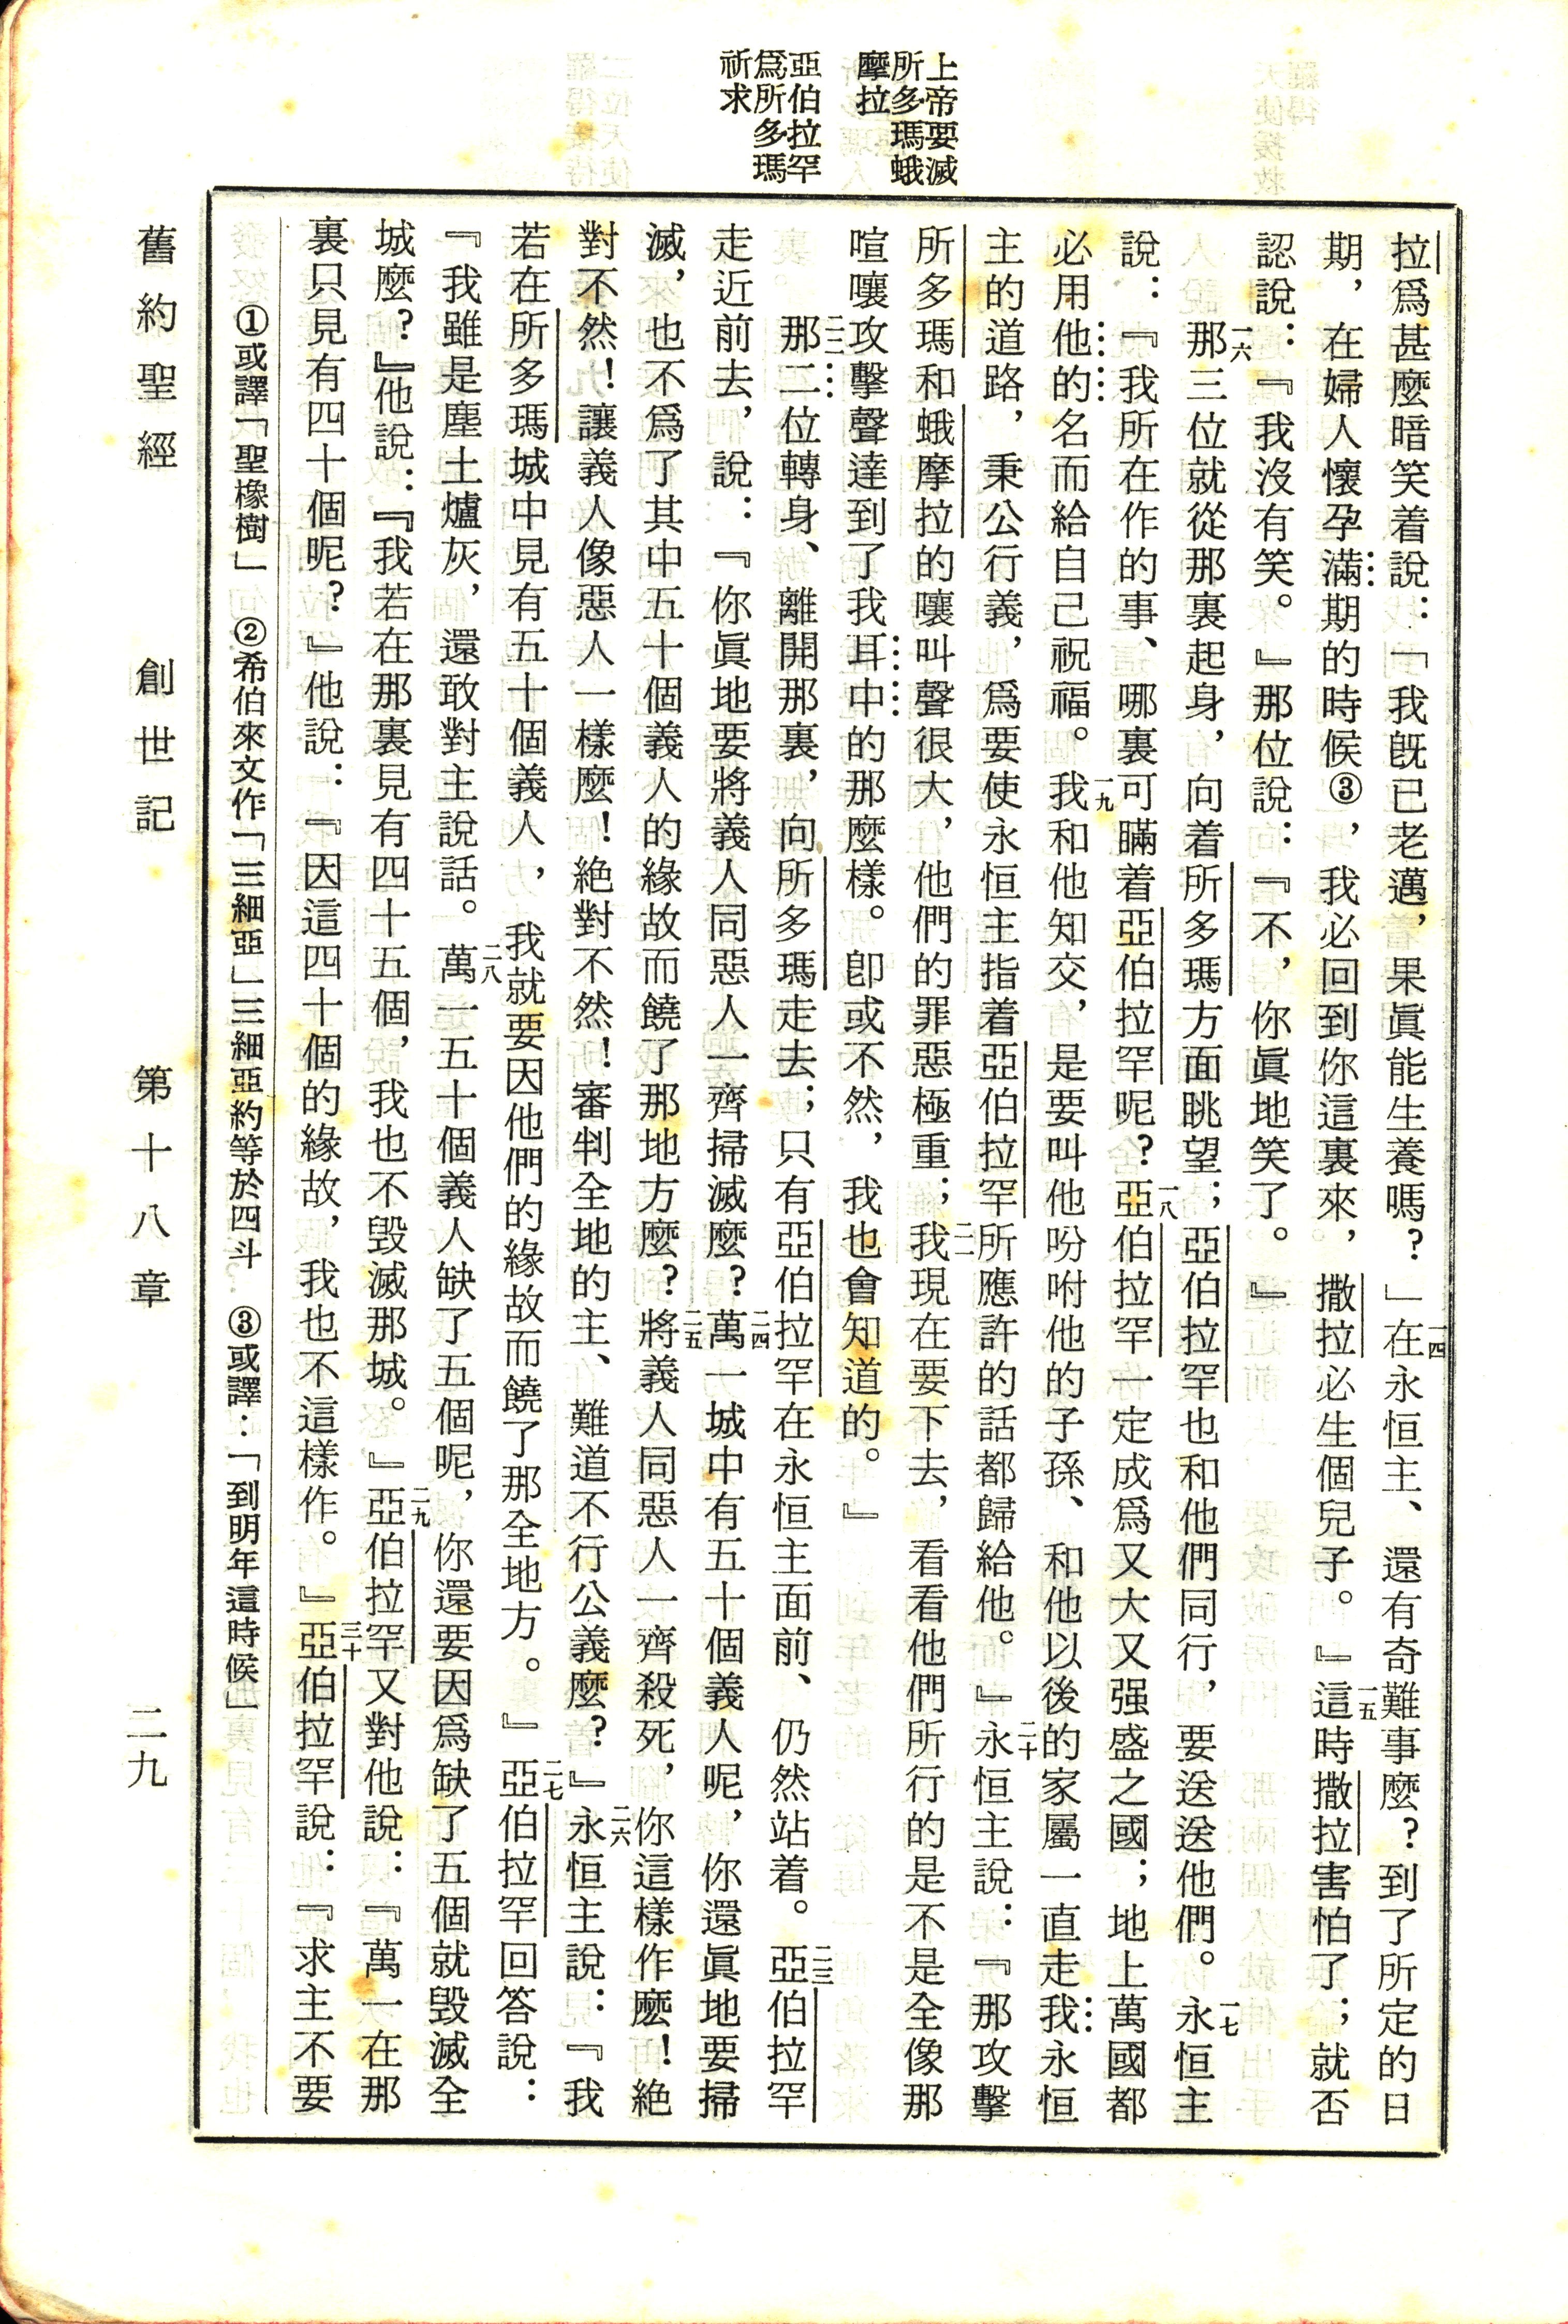 上帝要滅
所多瑪蛾
摩拉
亞伯拉罕
爲所多瑪
祈求
拉爲甚麼暗笑着說：「我旣已老邁，果眞能生養嗎？」一四在永恒主、還有奇難事麼？到了所定的日
期，在婦人懷孕滿期的時候③，我必回到你這裏來，撒拉必生個兒子。』一五這時撒拉害怕了；就否
認說：『我沒有笑。』那位說：『不，你眞地笑了。』
一六那三位就從那裏起身，向着所多瑪方面眺望；亞伯拉罕也和他們同行，要送送他們。一七永恒主
說：『我所在作的事、哪裏可瞞着亞伯拉罕呢？一八亞伯拉罕一定成爲又大又强盛之國；地上萬國都
必用他的名而給自己祝福。一九我和他知交，是要叫他吩咐他的子孫、和他以後的家屬一直走我永恒
主的道路，秉公行義，爲要使永恒主指着亞伯拉罕所應許的話都歸給他。』二十永恒主說：『那攻擊
所多瑪和蛾摩拉的嚷叫聲很大，他們的罪惡極重；二一我現在要下去，看看他們所行的是不是全像那
喧嚷攻擊聲達到了我耳中的那麼樣。卽或不然，我也會知道的。』
二二那二位轉身、離開那裏，向所多瑪走去；只有亞伯拉罕在永恒主面前、仍然站着。二三亞伯拉罕
走近前去，說：『你眞地要將義人同惡人一齊掃滅麼？二四萬一城中有五十個義人呢，你還眞地要掃
滅，也不爲了其中五十個義人的緣故而饒了那地方麼？二五將義人同惡人一齊殺死，你這樣作麼！絕
對不然！讓義人像惡人一樣麼！絕對不然！審判全地的主、難道不行公義麼？』二六永恒主說：『我
若在所多瑪城中見有五十個義人，我就要因他們的緣故而饒了那全地方。』二七亞伯拉罕回答說：
『我雖是塵土爐灰，還敢對主說話。二八萬一五十個義人缺了五個呢，你還要因爲缺了五個就毀滅全
城麼？』他說：『我若在那裏見有四十五個，我也不毀滅那城。』二九亞伯拉罕又對他說：『萬一在那
裏只見有四十個呢？』他說：『因這四十個的緣故，我也不這樣作。』三十亞伯拉罕說：『求主不要
①或譯「聖橡樹」②希伯來文作「三細亞」三細亞約等於四斗　③或譯：「到明年這時候」
舊約聖經　創世記　第十八章　二九